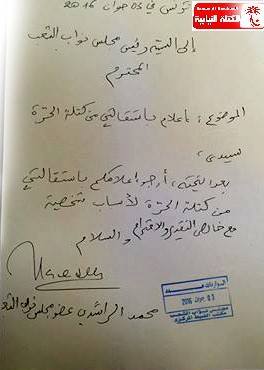 الكتلة النيابية
تونس في 03 جوان 2016
إلى السيد رئيس مجلس نواب الشعب
المحترم
الموضوع: إعلام باستقالتي من كتلة الحرة
سيدي،
بعد التحية، أرجو إعلامكم باستقالتي
من كتلة الحرة لأسباب شخصية
مع خالص التقدير والاحترام
والسلام
محمد الراشدي عضو مجلس نواب الشعب
الواردات
03 جوان 2016
مجلس نواب الشعب
مكتب الضبط المركزي